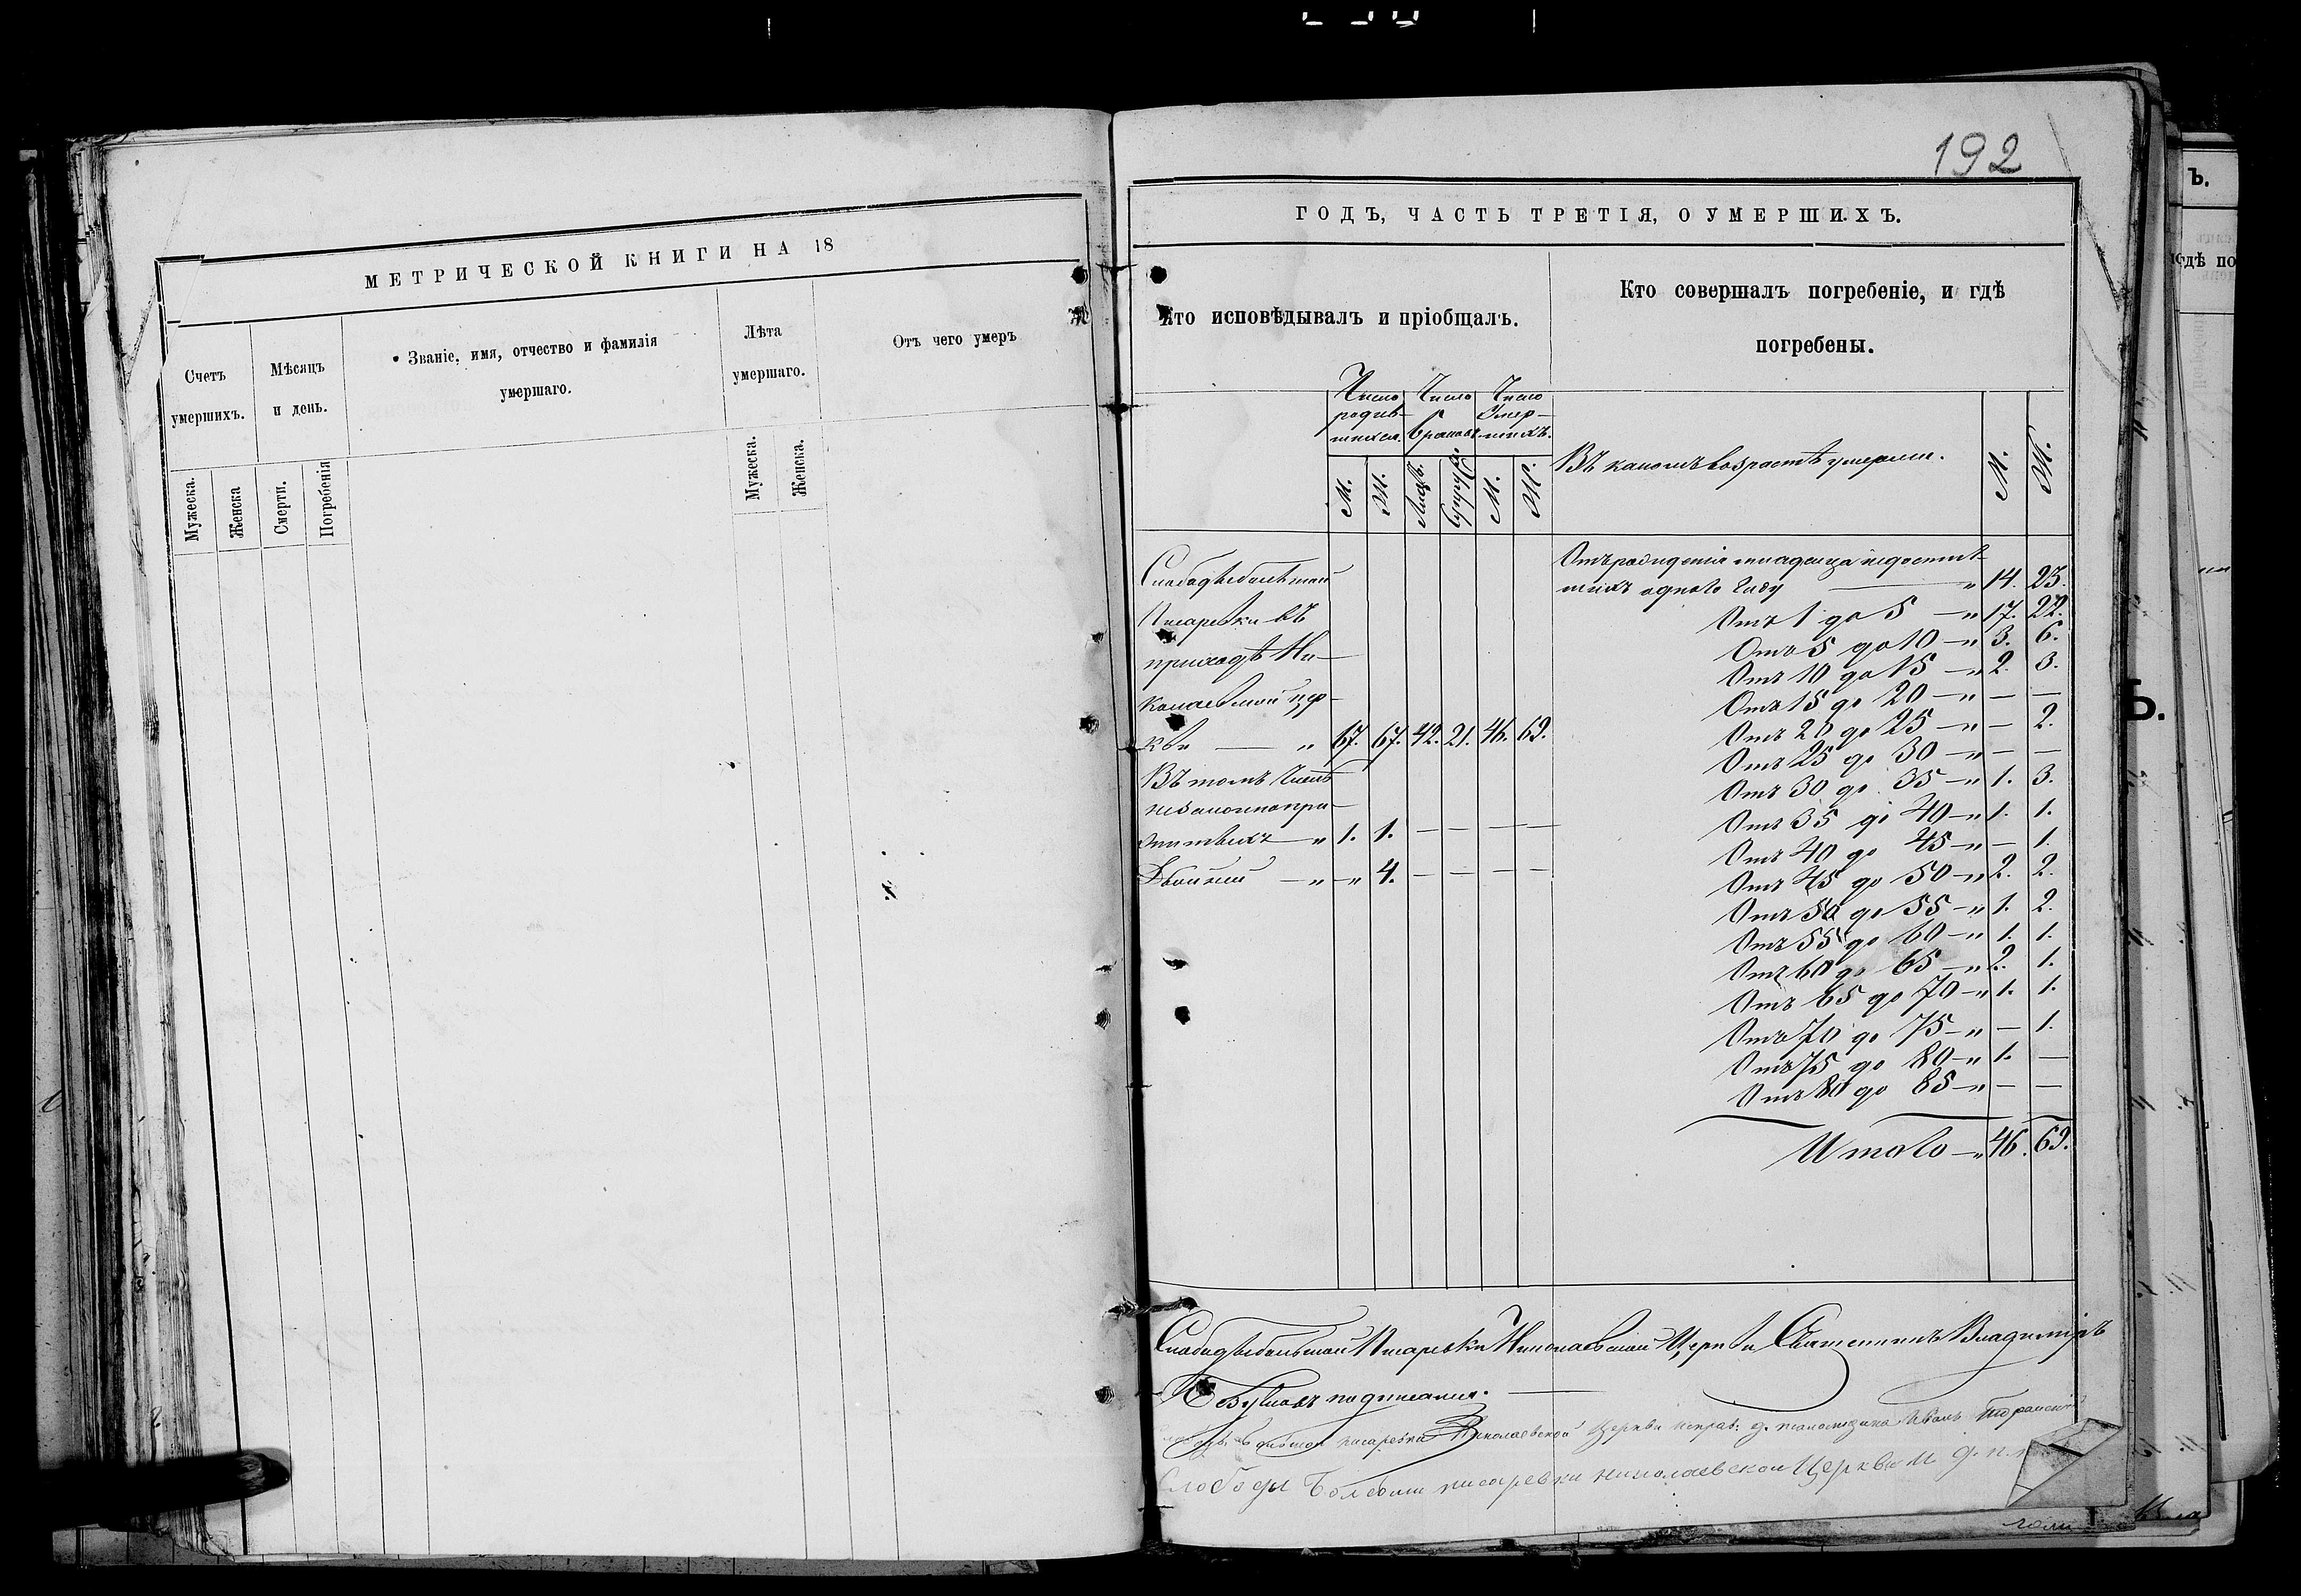 192
МЕТРИЧЕСКОЙ КНИГИ НА 18
Счетъ умершихъ.
Мѣсяцъ и день.
Званіе, имя, отчество и фамилія умершаго.
Лѣта умершаго.
Отъ чего умеръ
Мужеска.
Женска
Смерти.
Погребенія
Мужеска.
Женска.
ГОДЪ, ЧАСТЬ ТРЕТІЯ, О УМЕРШИХЪ.
Кто исповѣдывалъ и пріобщалъ.
Кто совершалъ погребеніе, и гдѣ
погребены.
Число родив-шихся.
Число браковъ
Число Умер-шихъ.
М. Ж. Лицъ. Супруж. М. Ж.
Въ какомъ возрастѣ умерли. М. Ж.
Слободы большой
Писаревки въ
приходѣ Ни-
колаевской цер-
кви — " 67. 67. 42. 21. 46. 69.
Въ томъ числѣ
незаконнопри-
житыхъ — " 1. 1. — — — —
Двойни — " — " 4. — — — —
Отъ рожденія младенца недостиг-
шихъ одного году — " 14. 23.
Отъ 1 до 5 — " 17. 22.
Отъ 5 до 10 — " 3. 6.
Отъ 10 до 15 — " 2. 3.
Отъ 15 до 20 — " — —
Отъ 20 до 25 — " — 2.
Отъ 25 до 30 — " — —
Отъ 30 до 35 — " 1. 3.
Отъ 35 до 40 — " 1. 1.
Отъ 40 до 45 — " — 1.
Отъ 45 до 50 — " 2. 2.
Отъ 50 до 55 — " 1. 2.
Отъ 55 до 60 — " 1. 1.
Отъ 60 до 65 — " 2. 1.
Отъ 65 до 70 — " 1. 1.
Отъ 70 до 75 — " — 1.
Отъ 75 до 80 — " 1. —
Отъ 80 до 85 — " — —
Итого — " 46. 69.
Слободы большой Писаревки Николаевской Церкви Священникъ Владиміръ
подписался.
писаревки Николаевской Церкви исправ: д. псаломщика Иванъ
Слободы Большой писаревки николаевской Церкви И. д. п.